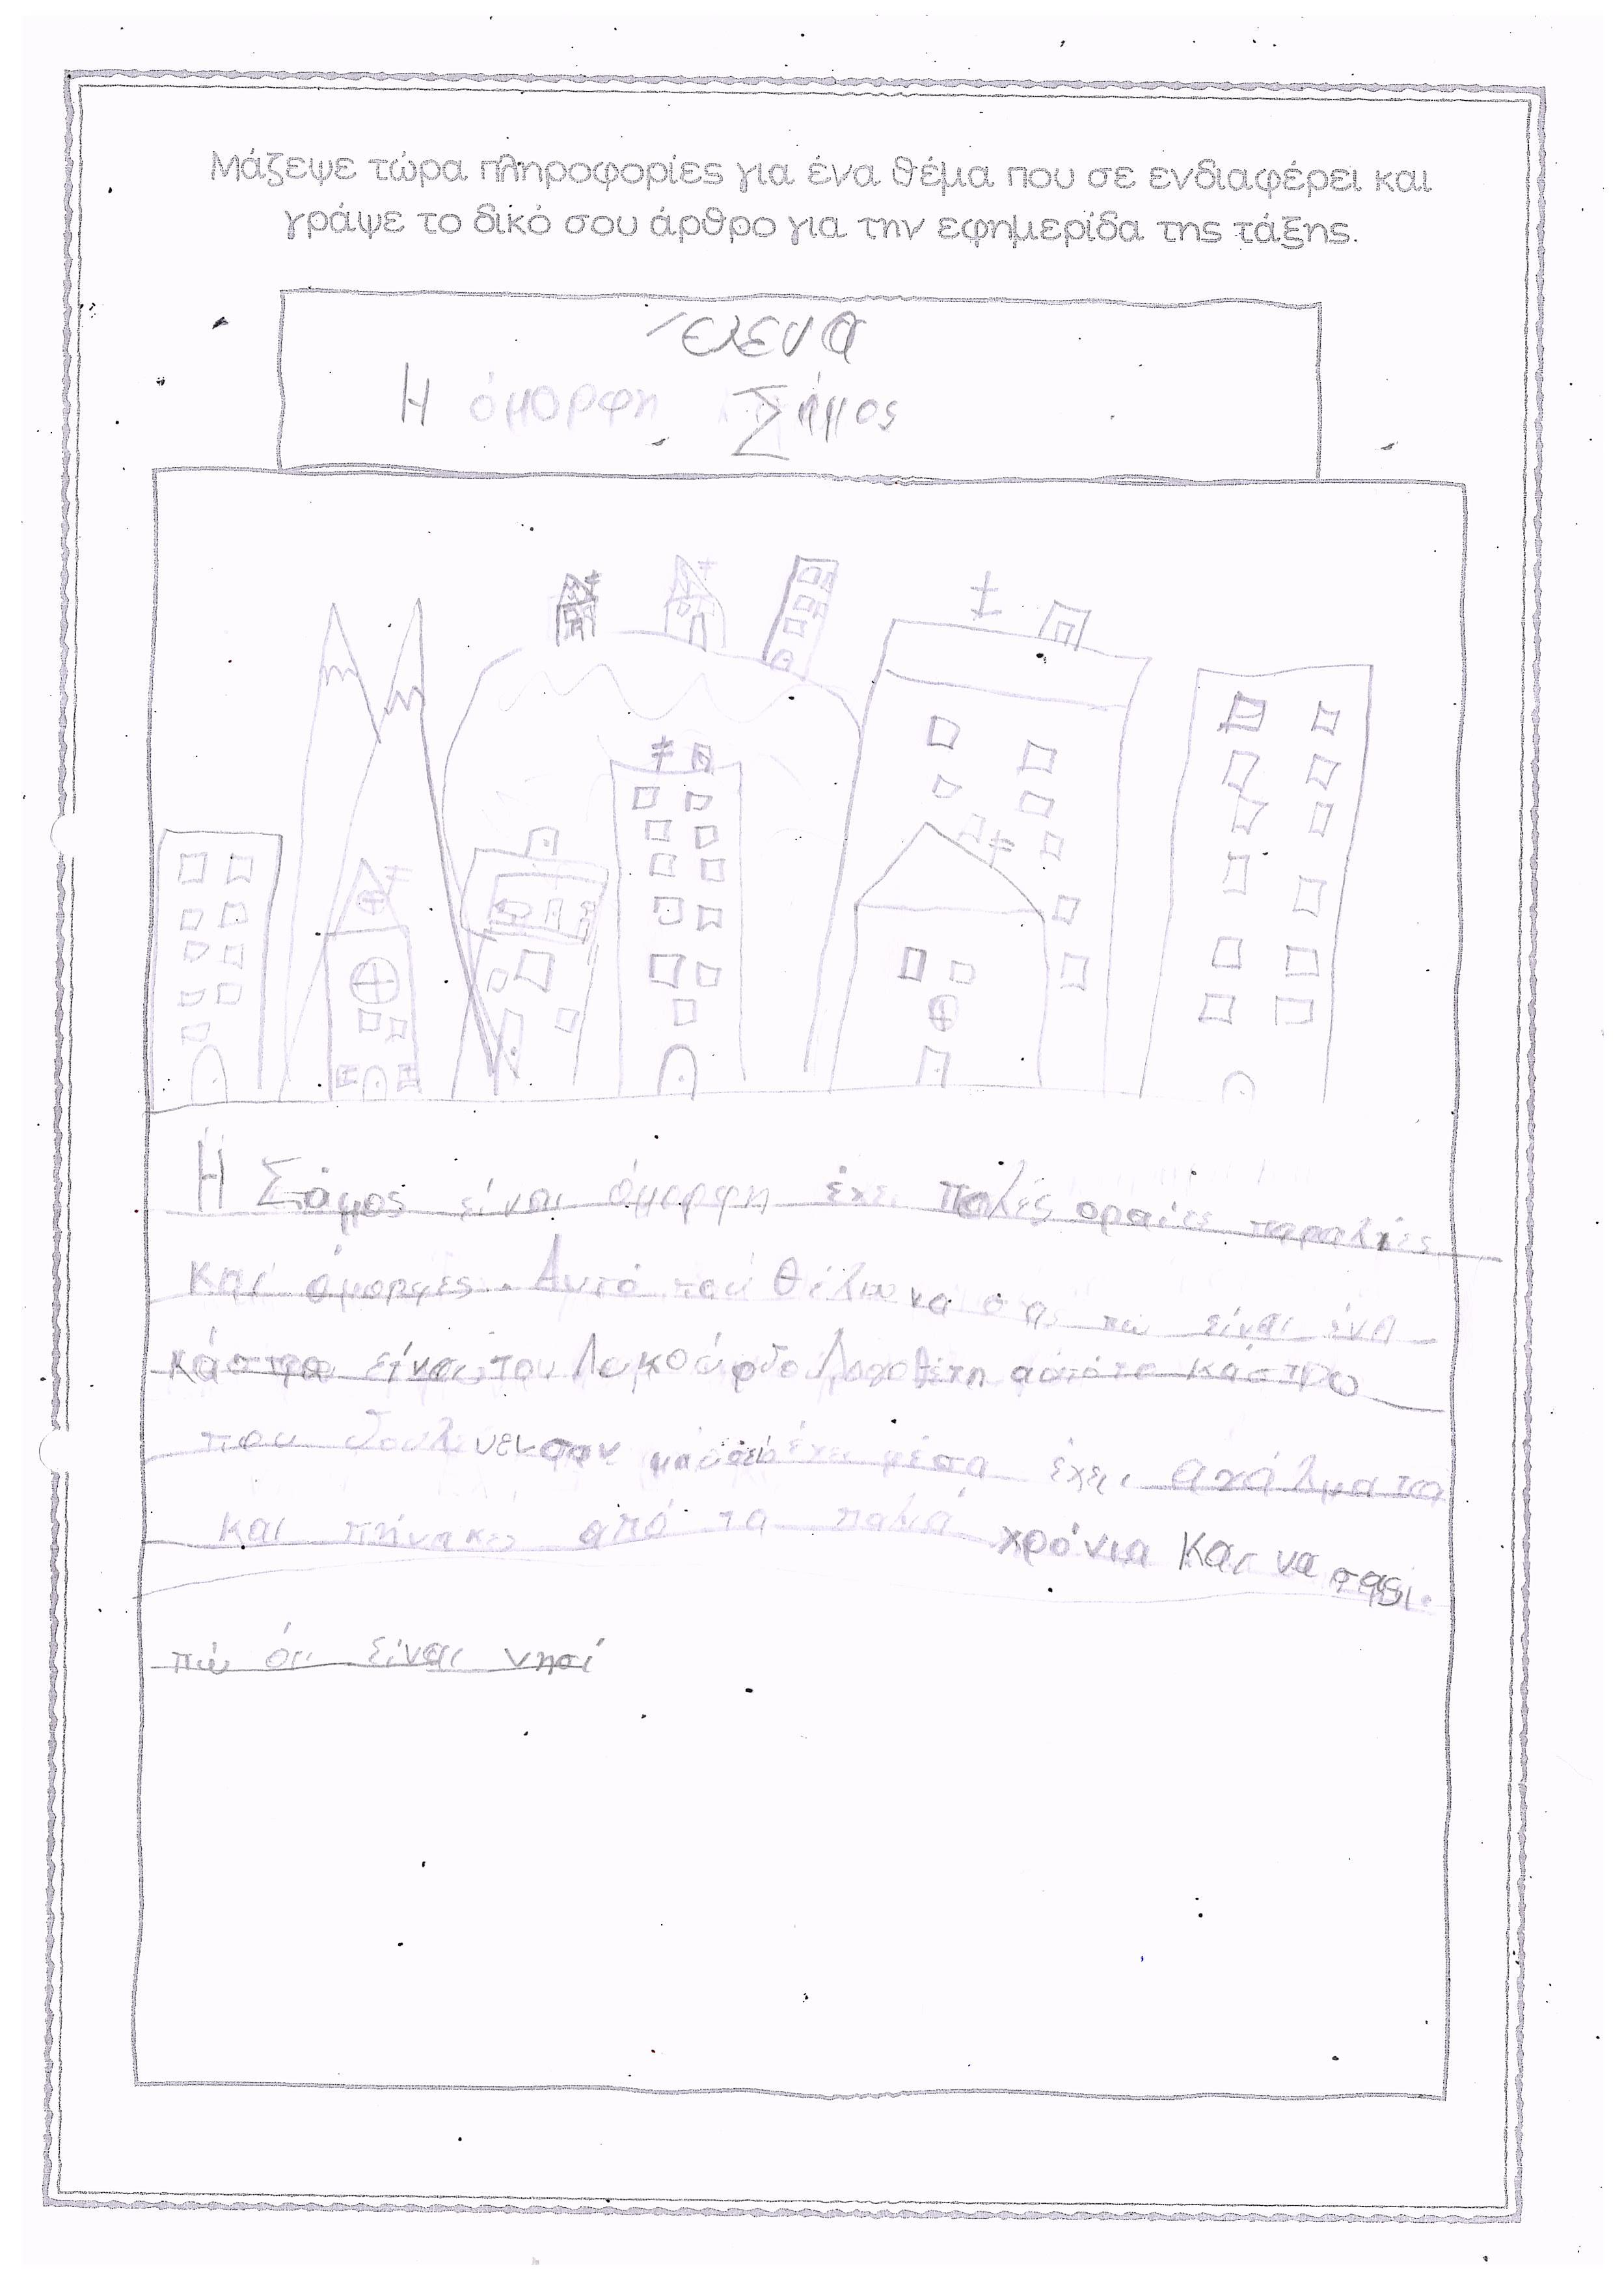 Μάζεψε τώρα πληροφορίες για ένα θέμα που σε ενδιαφέρει και
γράψε το δικό σου άρθρο για την εφημερίδα της τάξης.
Έλενα
Η όμορφη Σάμος
Η Σάμος είναι όμορφη έχει πολές οραίες παραλίες
και όμορφες. Αυτό που θέλω να σας πω είναι ένα
κάστρο είναι του Λυκούρδο Λογοθέτη αυτότο κάστρο
που έχει μέσα έχει αγάλματα
και πήνακες από τα παλιά χρόνια Και να σας
πώ ότι είναι νησί